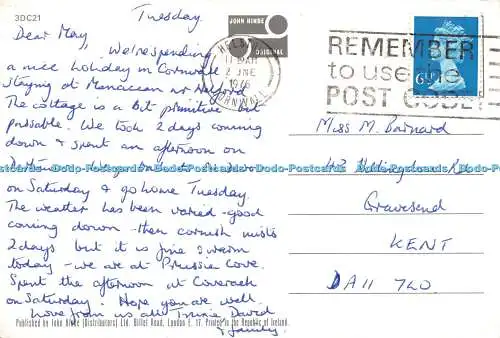 3DC21
Tuesday
Dear May,
We're spending
a nice holiday in Cornwall
staying at Manaccan nr Helford
The cottage is a bit primitive but
passable. We took 2 days coming
down & spent an afternoon on
on Saturday & go home Tuesday.
The weather has been varied - good
coming down - then cornish mists
2 days but it is fine & warm
today - we are at Prussia Cove.
Spent the afternoon at Coverack
on Saturday. Hope you are well.
Love from us all Trixie David
& family
Published by John Hinde (Distributors) Ltd. Billet Road, London E. 17. Printed in the Republic of Ireland.
JOHN HINDE
ORIGINAL
2 JNE
CORNWALL
REMEMBER
to use the
POST CODE
Miss M. Barnard
Gravesend
KENT
DA11 7LD.
Postcards Dobo-Postcards Dobo-Postcards Dobo-Postcards